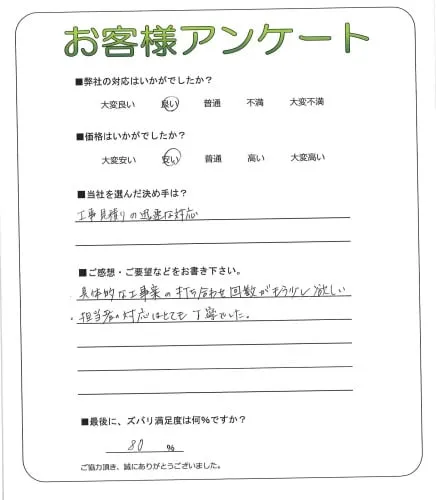 お客様アンケート
■弊社の対応はいかがでしたか?
大変良い 良い 普通 不満 大変不満
■価格はいかがでしたか?
大変安い 安い 普通 高い 大変高い
■当社を選んだ決め手は?
工事見積りの迅速な対応
■ご感想・ご要望などをお書き下さい。
・具体的な工事案の打ち合わせ回数がもう少し欲しい
・担当者の対応はとても丁寧でした。
■最後に、ズバリ満足度は何%ですか?
80 %
ご協力頂き、誠にありがとうございました。